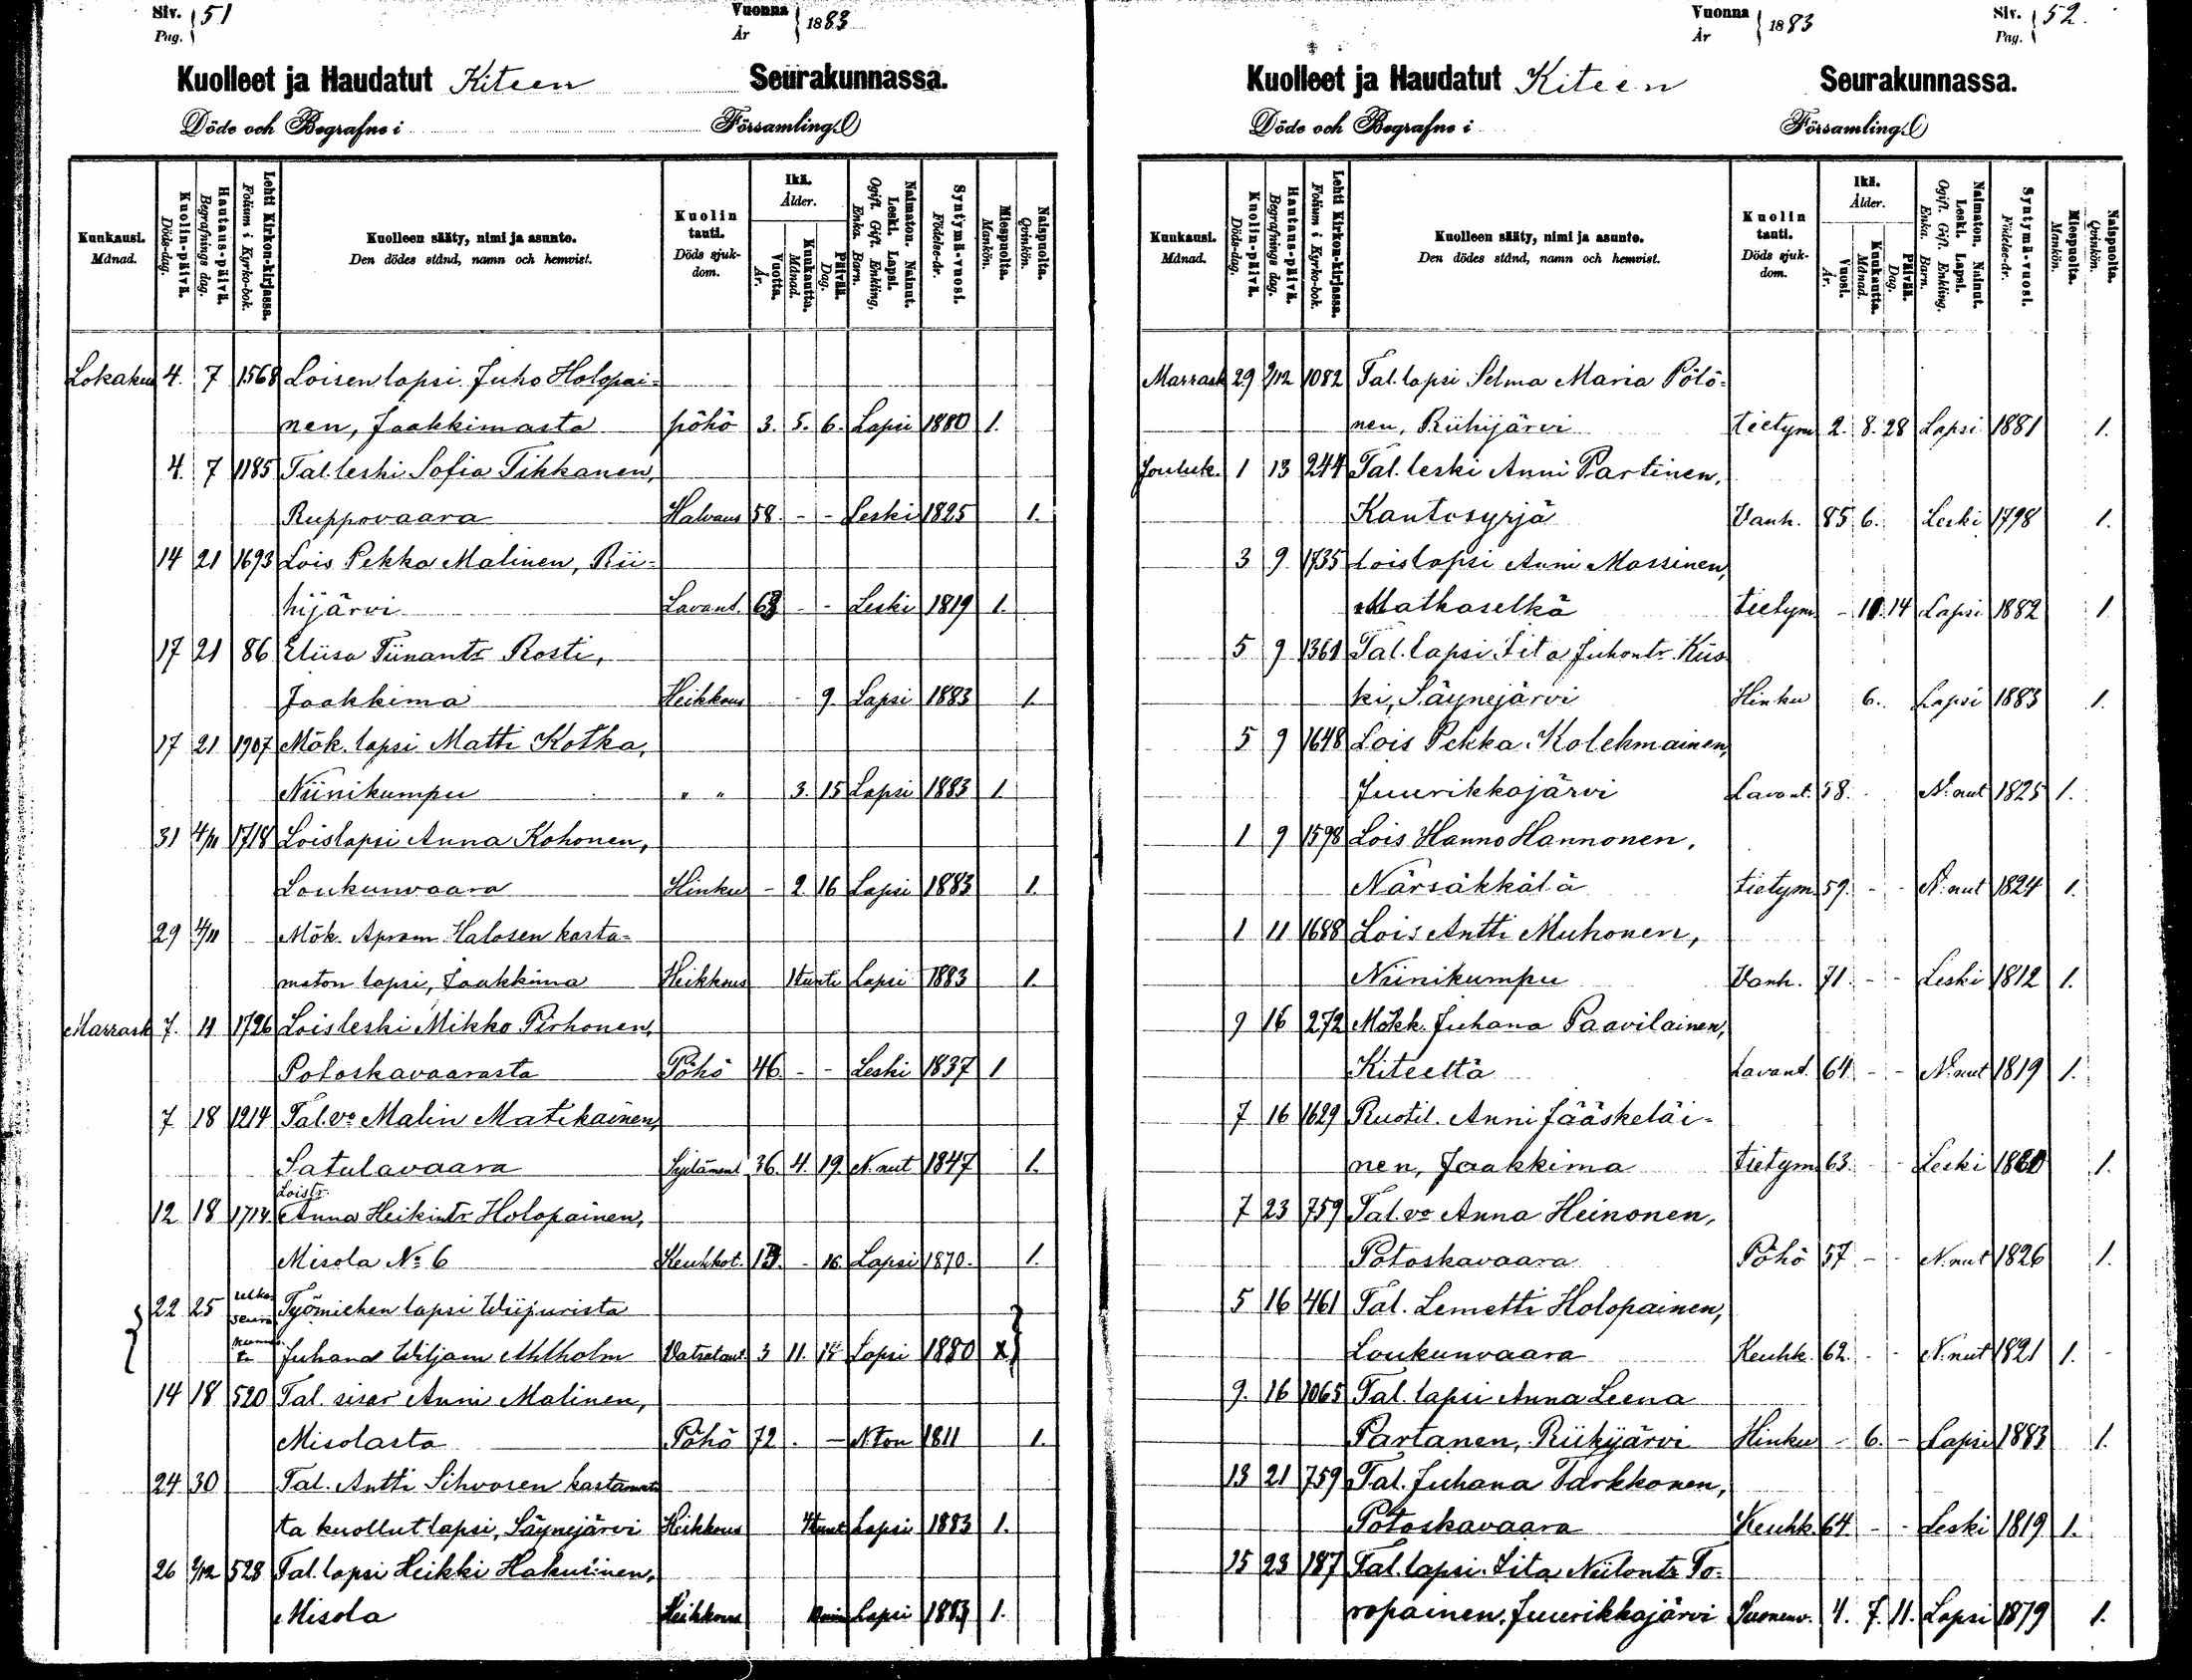 Siv. Pag. 51
Vuonna År 1883
Kuolleet ja Haudatut Kiteen Seurakunnassa.
Döde och Begrafne i Församling.
Kuukausi. Månad.
Kuolin-päivä. Döds-dag.
Hautaus-päivä. Begrafnings dag.
Lehti Kirkon-kirjassa. Folium i Kyrko-bok.
Kuolleen sääty, nimi ja asunto. Den dödes stånd, namn och hemvist.
Kuolin tauti. Döds sjukdom.
Ikä. Ålder.
Vuotta. År.
Kuukautta. Månad.
Päivää. Dag.
Naimaton. Nainut. Leski. Lapsi. Ogift. Gift. Enkling, Enka. Barn.
Syntymä-vuosi. Födelse-år.
Miespuolta. Mankön.
Naispuolta. Qvinkön.
Lokakuu 4. 7 1568 Loisen lapsi Juho Holopai=
nen, Jaakkimasta pöhö 3. 5. 6. Lapsi 1880 1.
4 7 1185 Tal. leski Sofia Tikkanen,
Ruppovaara Halvaus 58. - - Leski 1825 1.
14 21 1693 Lois Pekka Malinen, Rii=
hijärvi Lavant. 63 - - Leski 1819 1.
17 21 86 Eliisa Tiinantr Rosti,
Jaakkima Heikkous - 9. Lapsi 1883 1.
17 21 1907 Mök. lapsi Matti Kotka,
Niinikumpu " " 3. 15 Lapsi 1883 1.
31 4/11 1718 Loislapsi Anna Kohonen,
Loukunvaara Hinku - 2. 16 Lapsi 1883 1.
29 4/11 Mök. Apram Halosen kasta=
maton lapsi, Jaakkima Heikkous 1 tunti Lapsi 1883 1.
Marrask 7. 11 1726 Loisleski Mikko Pirhonen,
Potoskavaarasta Pöhö 46. - - Leski 1837 1
7 18 1214 Tal. vo Malin Matikainen,
Satulavaara Sydäment 36. 4. 19. N. nut 1847 1.
Loistr.
12 18 1714. Anna Heikintr Holopainen,
Misola No 6 Keuhkot. 13. - 16. Lapsi 1870. 1.
22 25 ulko seura kunnas ta Työmiehen lapsi Wiipurista
Juhana Wiljam Ahlholm Vatsataut. 3 11. 14 Lapsi 1880 x
14 18 520 Tal. sisar Anni Malinen,
Misolasta Pöhö 72 . - N. ton 1811 1.
24 30 Tal. Antti Sihvosen kastamat
ta kuollut lapsi, Säynejärvi Heikkous 4 tunt Lapsi 1883 1.
26 2/12 528 Tal. lapsi Heikki Hakulinen,
Misola Heikkous Lapsi 1883 1.
Vuonna År 1883
Siv. Pag. 52.
Kuolleet ja Haudatut Kiteen Seurakunnassa.
Döde och Begrafne i Församling.
Kuukausi. Månad.
Kuolin-päivä. Döds-dag.
Hautaus-päivä. Begrafnings dag.
Lehti Kirkon-kirjassa. Folium i Kyrko-bok.
Kuolleen sääty, nimi ja asunto. Den dödes stånd, namn och hemvist.
Kuolin tauti. Döds sjukdom.
Ikä. Ålder.
Vuosi. År.
Kuukautta. Månad.
Päivää. Dag.
Naimaton. Nainut. Leski. Lapsi. Ogift. Gift. Enkling. Enka. Barn.
Syntymä-vuosi. Födelse-år.
Miespuolta. Mankön.
Naispuolta. Qvinkön.
Marrask 29 2/12 1082 Tal. lapsi Selma Maria Pölö=
nen, Riihijärvi tietym 2. 8. 28 Lapsi 1881 1.
Jouluk. 1 13 244 Tal. leski Anni Partinen,
Kantosyrjä Vanh. 85 6. Leski 1798 1.
3 9 1735 Loislapsi Anni Massinen,
Matkaselkä tietym - 10. 14 Lapsi 1882 1
5 9 1361 Tal. lapsi Iita Juhontr. Kiis
ki, Säynejärvi Hinku 6. Lapsi 1883 1.
5 9 1648 Lois Pekka Kolehmainen,
Juurikkajärvi Lavant. 58. - N. nut 1825 1.
1 9 1598 Lois Hanno Hannonen,
Närsäkkälä tietym 59. - - N. nut 1824 1.
1 11 1688 Lois Antti Muhonen,
Niinikumpu Vanh. 71. - - Leski 1812 1.
9 16 272 Mökk. Juhana Paavilainen,
Kiteeltä Lavant. 64. - - N. nut 1819 1.
7 16 1629 Ruotil. Anni Jääskeläi=
nen, Jaakkima tietym 63. - - Leski 1820 1.
7 23 759 Tal. vo Anna Heinonen,
Potoskavaara Pöhö 57 - - N. nut 1826 1.
5 16 461 Tal. Lemetti Holopainen,
Loukunvaara Keuhk. 62. - - N. nut 1821 1. -
9. 16 1065 Tal. lapsi Anna Leena
Partanen, Riihijärvi Hinku - 6. - Lapsi 1883 1.
13 21 759 Tal. Juhana Tarkkonen,
Potoskavaara Keuhk. 64 - - Leski 1819 1.
15 23 187 Tal. lapsi. Iita Niilontr To=
ropainen, Juurikkajärvi Suonenv. 4. 7. 11. Lapsi 1879 1.